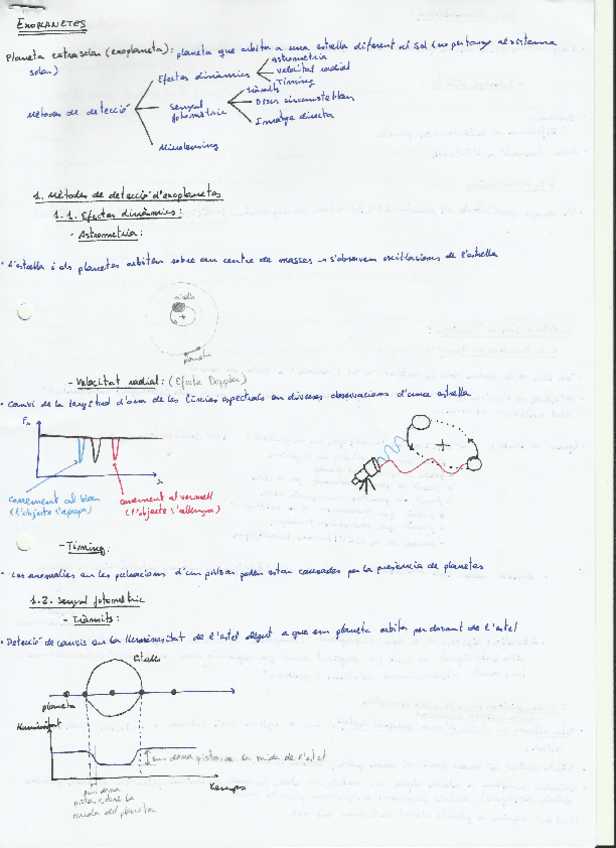 EXOPLANETES
Planeta extrasolar (exoplaneta): planeta que orbita a una estrella diferent al Sol (no pertany al sistema
solar)
Mètodes de detecció
Efectes dinàmics
astrometria
velocitat radial
Timing
Senyal fotomètric
Trànsits
Discs circumstel·lars
Imatge directa
Microlensing
1. Mètodes de detecció d'exoplanetes
1.1. Efectes dinàmics:
- Astrometria:
· L'estrella i els planetes orbiten sobre un centre de masses → s'observen oscil·lacions de l'estrella
estrella
planeta
- Velocitat radial: (Efecte Doppler)
· Canvi de la longitud d'ona de les línies espectrals en diverses observacions d'una estrella
λ
corriment al blau
(l'objecte s'apropa)
corriment al vermell
(l'objecte s'allunya)
- Timing:
· Les anomalies en les pulsacions d'un púlsar poden estar causades per la presència de planetes
1.2. Senyal fotomètric
- Trànsits:
· Detecció de canvis en la lluminositat de l'estel degut a que un planeta orbita per davant de l'estel
Estrella
planeta
lluminositat
ens dona pistes de la mida de l'estel
temps
ens dona
pistes sobre la
mida del planeta